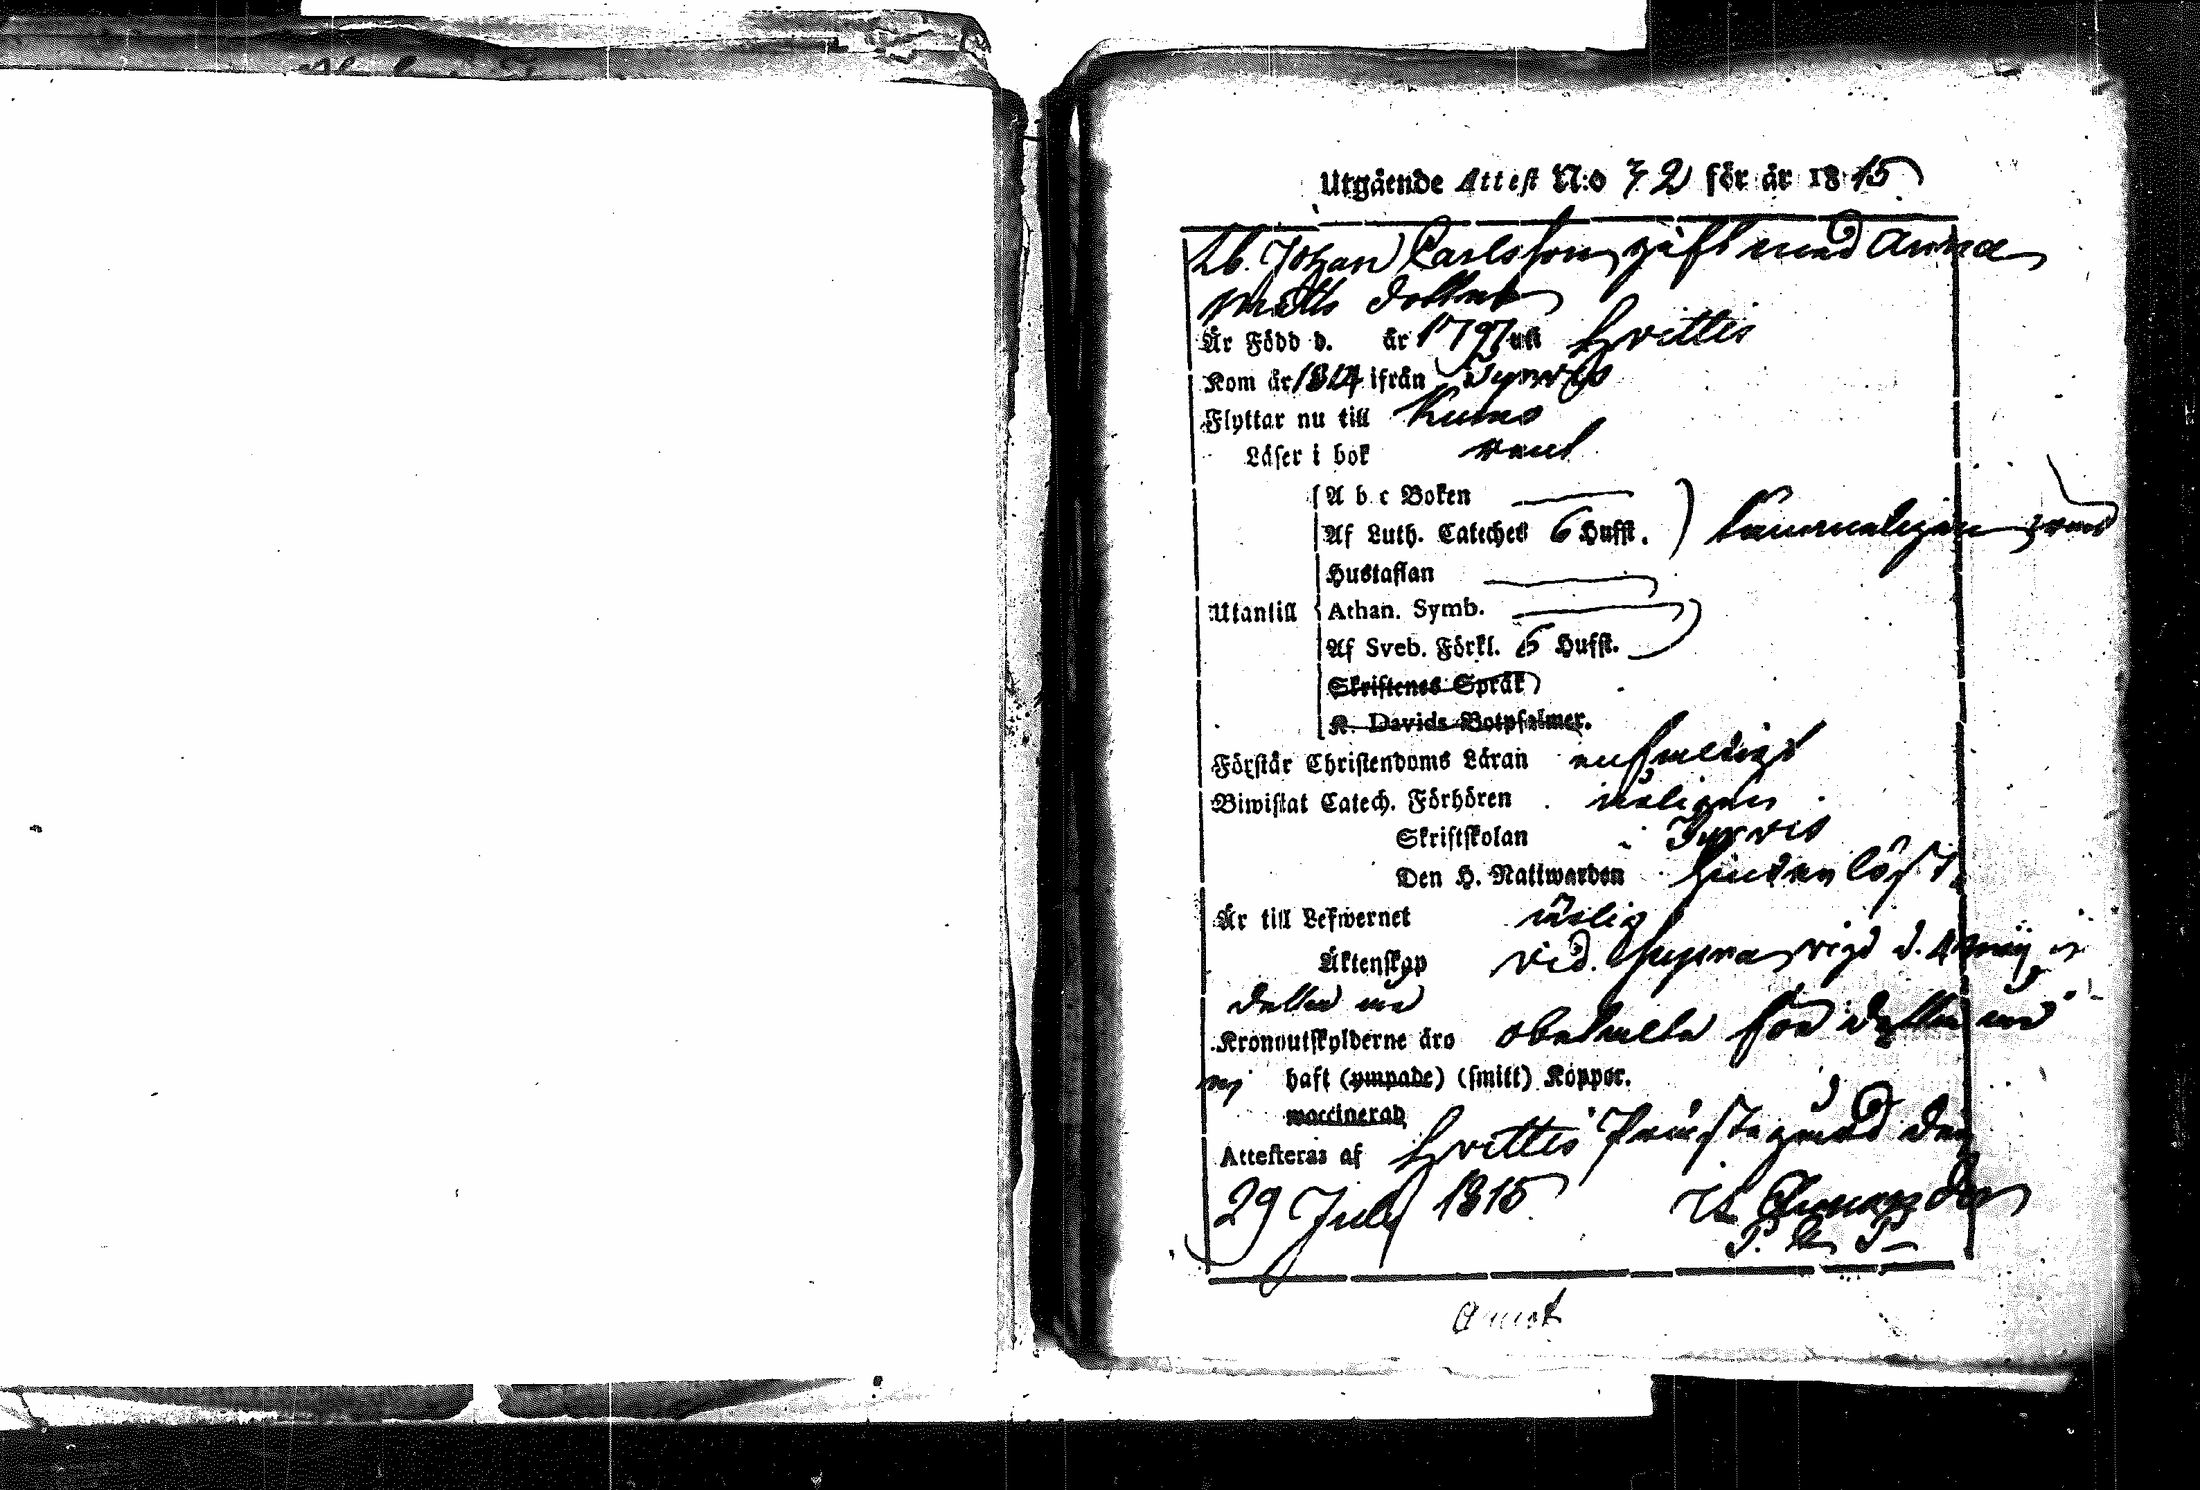 Utgående Attest N:o 72 för år 1815
Db. Johan Carlsson gift med Anna
Matts dotter
Är Född d. år 1797 uti Hvittis
Kom år 1814 ifrån Tyrvis
Flyttar nu till Kumo
Läser i bok rent
A b c Boken
Af Luth. Cateches 6 Hufst.
Hustaflan
Utantill Athan. Symb.
Af Sveb. Förkl. 6 Hufst.
Skriftenes Språk
K. Davids Botpsalmer.
Förstår Christendoms Läran enfaldigt
Biwistat Catech. Förhören
Skriftskolan i Tyrvis
Den H. Nattwarden
Är till Lefwernet ärlig
Äktenskap vid. supra vigd d. 4 Maij
detta
Kronoutskylderne äro obetalta för detta
ej haft (ympade) (smitt) Koppor.
waccinerad
Attesteras af Hvittis Prästegård den
29 July 1815